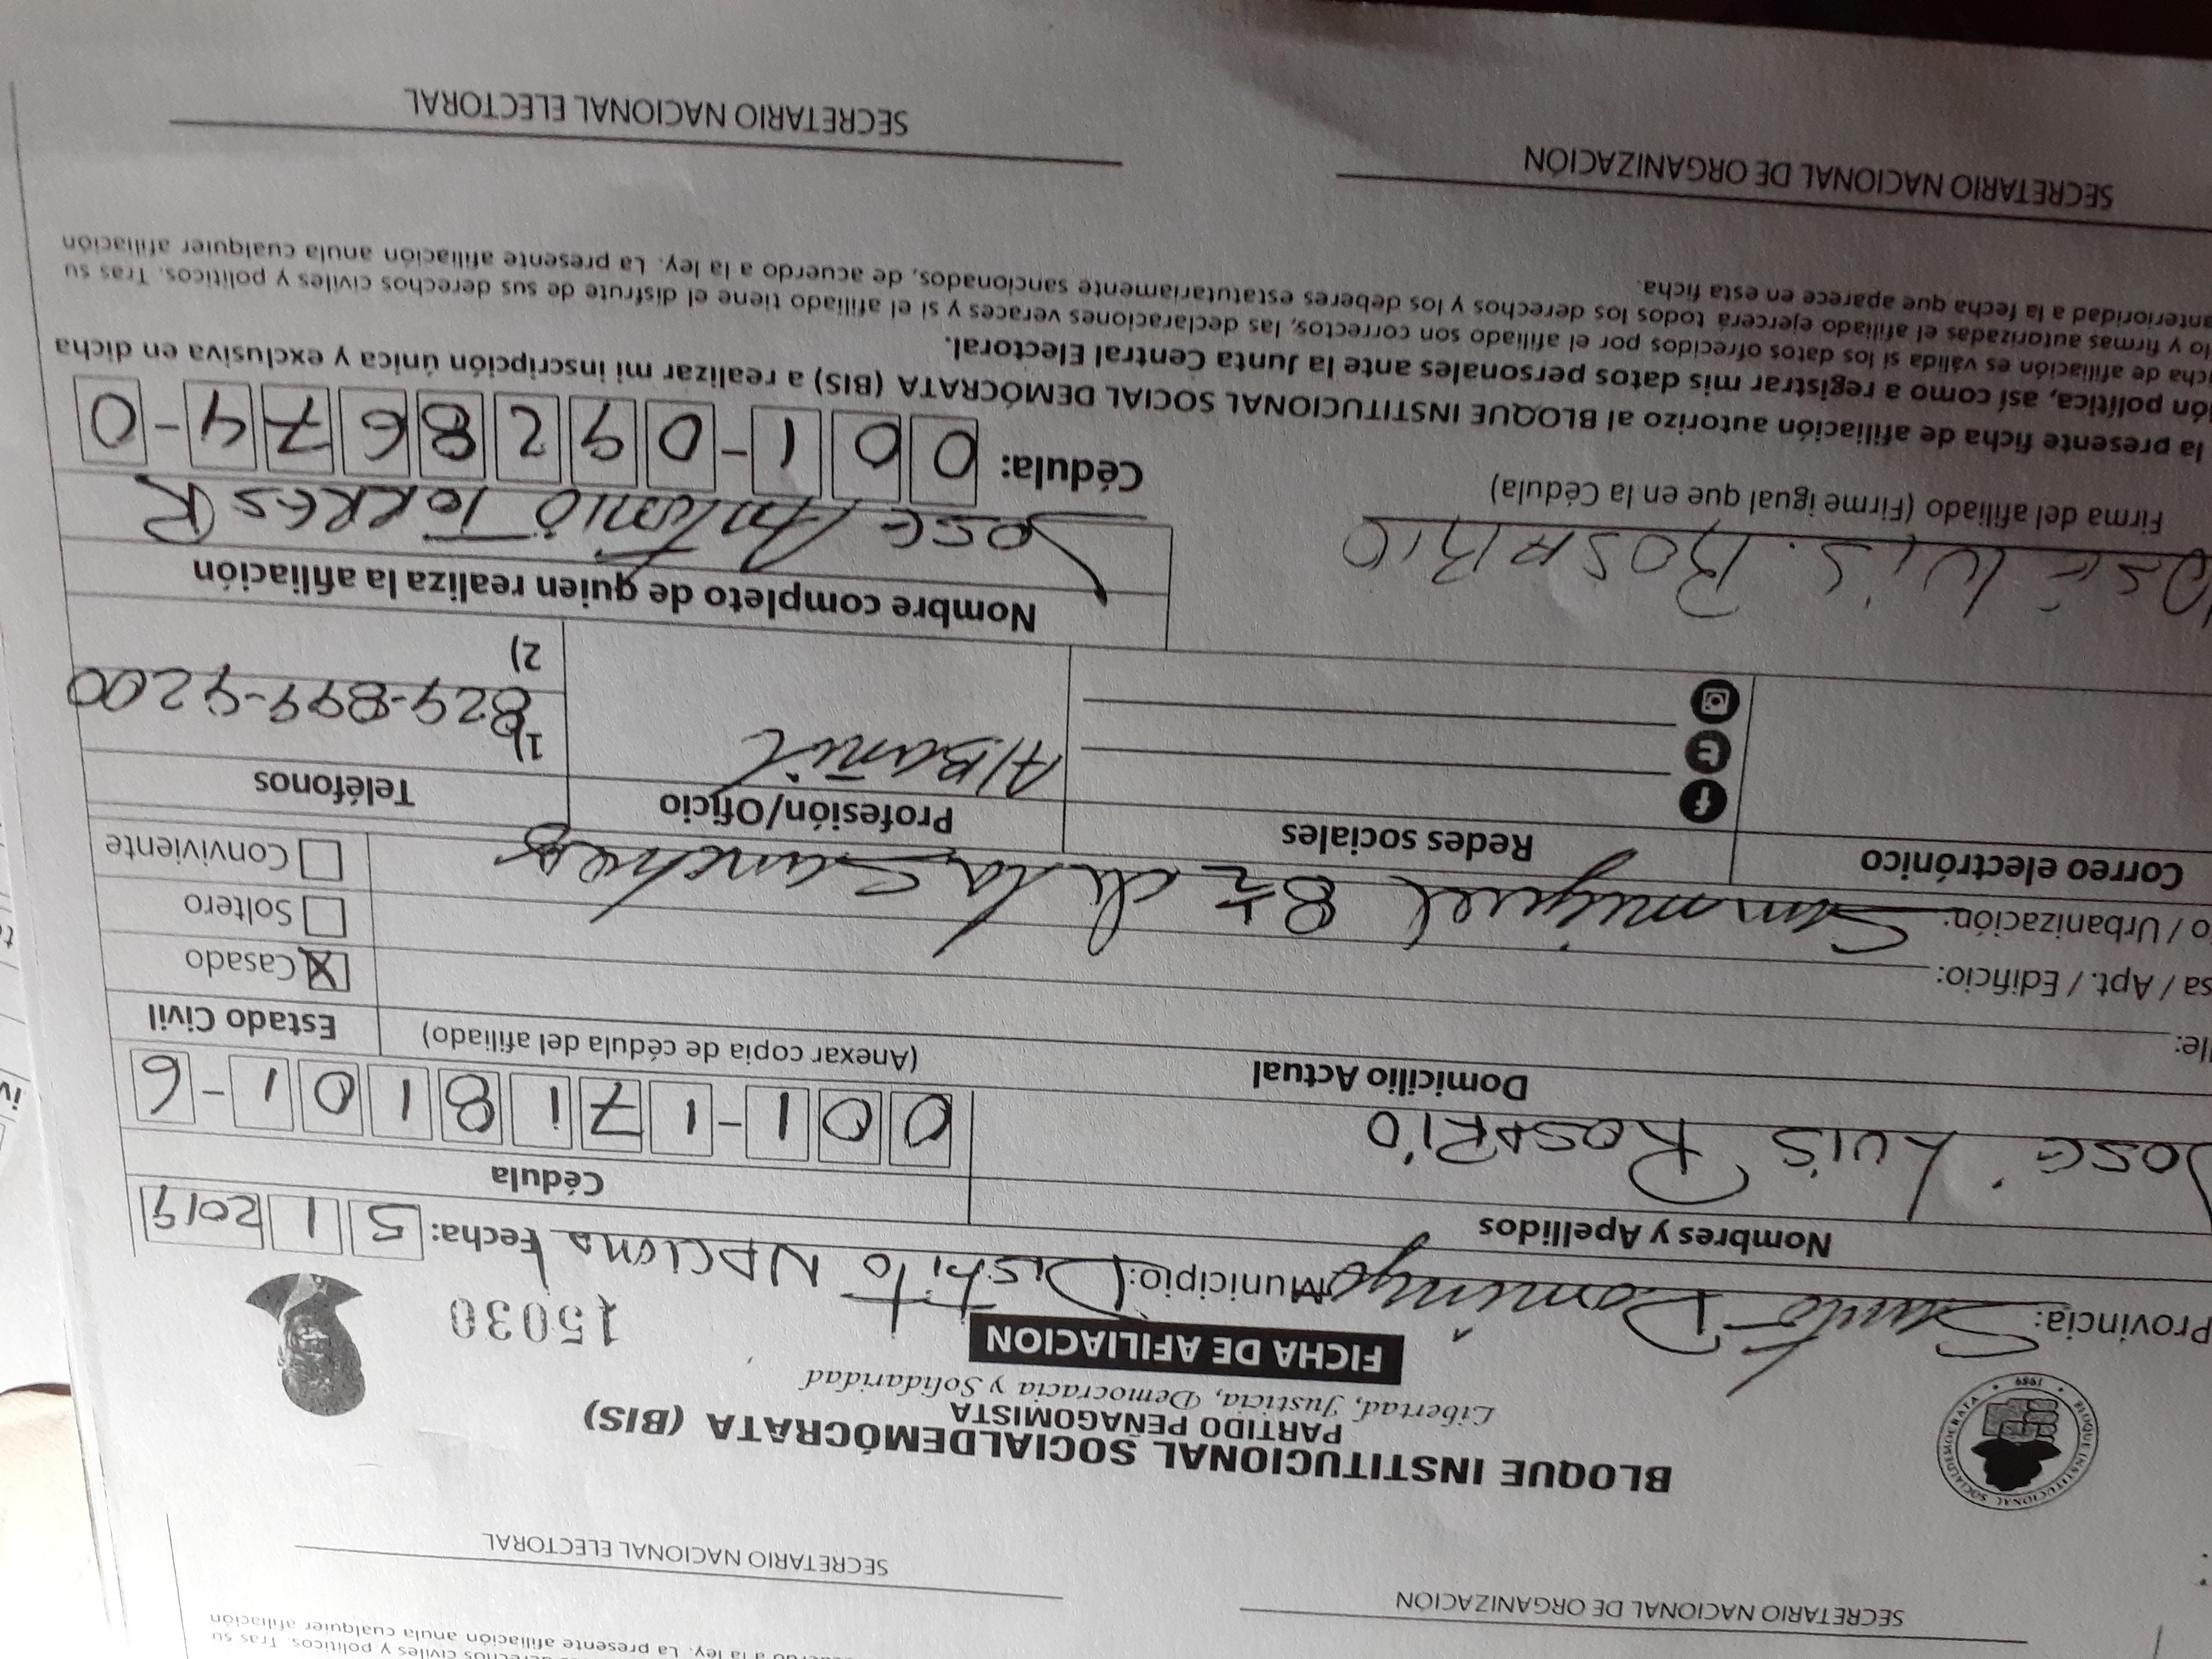 BLOQUE INSTITUCIONAL SOCIALDEMÓCRATA (BIS)
PARTIDO PEÑAGOMISTA
Libertad, Justicia, Democracia y Solidaridad
FICHA DE AFILIACION
15030
BLOQUE INSTITUCIONAL SOCIALDEMOCRATA
1989
Provincia: Santo Domingo Municipio: Distrito NAcionA Fecha: 5 1 2019
Nombres y Apellidos
Cédula
JOSÉ LUIS ROSARIO
001-1718101-6
Domicilio Actual
(Anexar copia de cédula del afiliado)
Estado Civil
lle:
sa / Apt. / Edificio:
Casado X
o / Urbanización: San miguel 8½ de la Sanchez
Soltero
Conviviente
Correo electrónico
Redes sociales
Profesión/Oficio
Teléfonos
AlBañil
1) 829-899-9200
2)
Nombre completo de quien realiza la afiliación
JOSÉ LUIS. ROSARIO
Jose Antonio TORRES R
Firma del afiliado (Firme igual que en la Cédula)
Cédula: 001-0928674-0
la presente ficha de afiliación autorizo al BLOQUE INSTITUCIONAL SOCIAL DEMÓCRATA (BIS) a realizar mi inscripción única y exclusiva en dicha
ión política, así como a registrar mis datos personales ante la Junta Central Electoral.
icha de afiliación es válida si los datos ofrecidos por el afiliado son correctos, las declaraciones veraces y si el afiliado tiene el disfrute de sus derechos civiles y políticos. Tras su
lo y firmas autorizadas el afiliado ejercerá todos los derechos y los deberes estatutariamente sancionados, de acuerdo a la ley. La presente afiliación anula cualquier afiliación
anterioridad a la fecha que aparece en esta ficha.
SECRETARIO NACIONAL DE ORGANIZACIÓN
SECRETARIO NACIONAL ELECTORAL
derechos civiles y políticos. Tras su
acuerdo a la ley. La presente afiliación anula cualquier afiliación
SECRETARIO NACIONAL DE ORGANIZACIÓN
SECRETARIO NACIONAL ELECTORAL